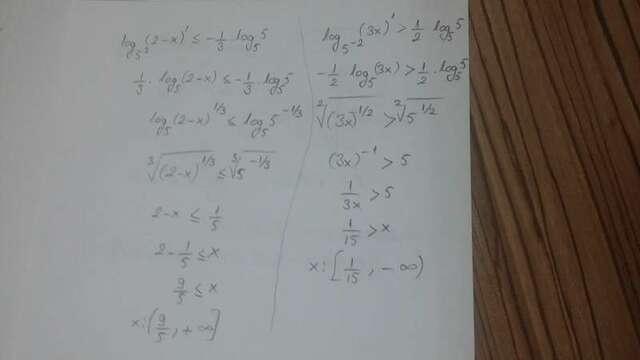 log₅₋₂(2-x)' ≤ -1/3 · log₅5
1/3 · log₅(2-x) ≤ -1/3 · log₅5
log₅(2-x)^1/3 ≤ log₅5^-1/3
³√(2-x)^1/3 ≤ ³√5^-1/3
2-x ≤ 1/5
2-1/5 ≤ x
9/5 ≤ x
x:(9/5, +∞]
log₅₋₂(3x)' > 1/2 · log₅5
-1/2 log₅(3x) > 1/2 · log₅5
²√(3x)^-1/2 > ²√5^1/2
(3x)^-1 > 5
1/3x > 5
1/15 > x
x:[1/15, -∞)